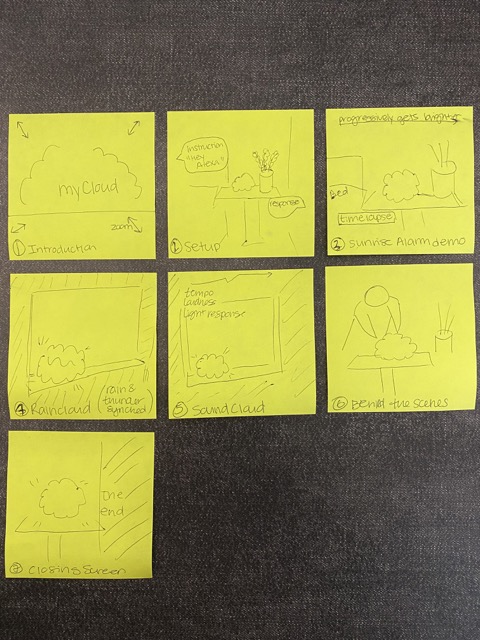 myCloud
zoom
① Introduction
Instruction
"Hey
Alexa"
response
② Setup
progressively gets brighter
Bed
timelapse
③ Sunrise Alarm demo
④ Raincloud
rain &
thunder
synched
tempo
loudness
light response
⑤ SoundCloud
⑥ Behind the scenes
The
end
⑦ Closing Screen